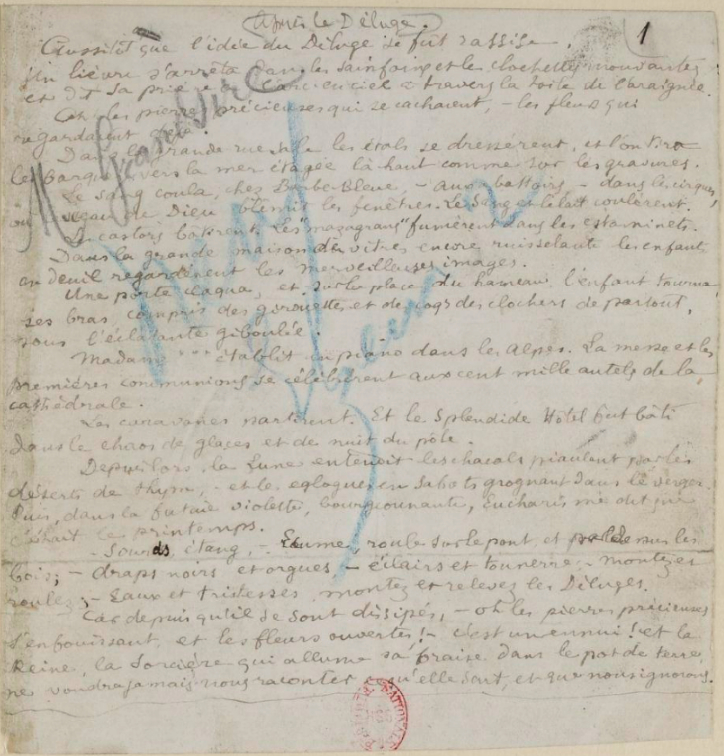 Après le Déluge.
1
Aussitôt que l'idée du Déluge se fut rassise,
Un lièvre s'arrêta dans les sainfoins et les clochettes mouvantes
et dit sa prière à l'arc-en-ciel à travers la toile de l'araignée.
Oh les pierres précieuses qui se cachaient, — les fleurs qui
regardaient déjà.
Dans la grande rue sale les étals se dressèrent, et l'on tira
les barques vers la mer étagée là-haut comme sur les gravures.
Le sang coula, chez Barbe-Bleue, — aux abattoirs, — dans les cirques,
où le sceau de Dieu blêmit les fenêtres. Le sang et le lait coulèrent.
Les castors bâtirent. Les "mazagrans" fumèrent dans les estaminets.
Dans la grande maison de vitres encore ruisselante les enfants
en deuil regardèrent les merveilleuses images.
Une porte claqua, et sur la place du hameau, l'enfant tourna
ses bras, compris des girouettes et des coqs des clochers de partout,
sous l'éclatante giboulée.
Madame *** établit un piano dans les Alpes. La messe et les
premières communions se célébrèrent aux cent mille autels de la
cathédrale.
Les caravanes partirent. Et le Splendide Hôtel fut bâti
dans le chaos de glaces et de nuit du pôle.
Depuis lors, la Lune entendit les chacals piaulant par les
déserts de thym, — et les églogues en sabots grognant dans le verger.
Puis, dans la futaie violette, bourgeonnante, Eucharis me dit que
c'était le printemps.
— Sourds étang, — Écume, roule sur le pont et par dessus les
bois; — draps noirs et orgues — éclairs et tonnerre; — montez et
roulez; — Eaux et tristesses, montez et relevez les Déluges.
Car depuis qu'ils se sont dissipés, — oh les pierres précieuses
s'enfouissant, et les fleurs ouvertes! — c'est un ennui! et la
Reine, la Sorcière qui allume sa braise dans le pot de terre,
ne voudra jamais nous raconter ce qu'elle sait, et que nous ignorons.